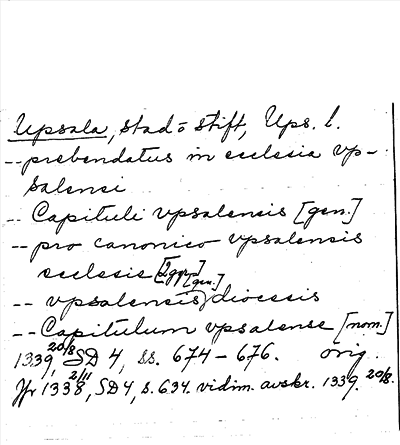 Upsala, stad o stift, Ups. l.
-- prebendatus in ecclesia vp-
salensi
-- Capituli vpsalensis [gen.]
-- pro canonico vpsalensis
ecclesie [2ggr] [gen.]
-- vpsalensis diocesis
-- Capitulum vpsalense [nom.]
1339 20/8, SD 4, ss. 674-676. orig.
Jfr 1338, 2/11 SD 4, s. 634. vidim. avskr. 1339. 20/8.